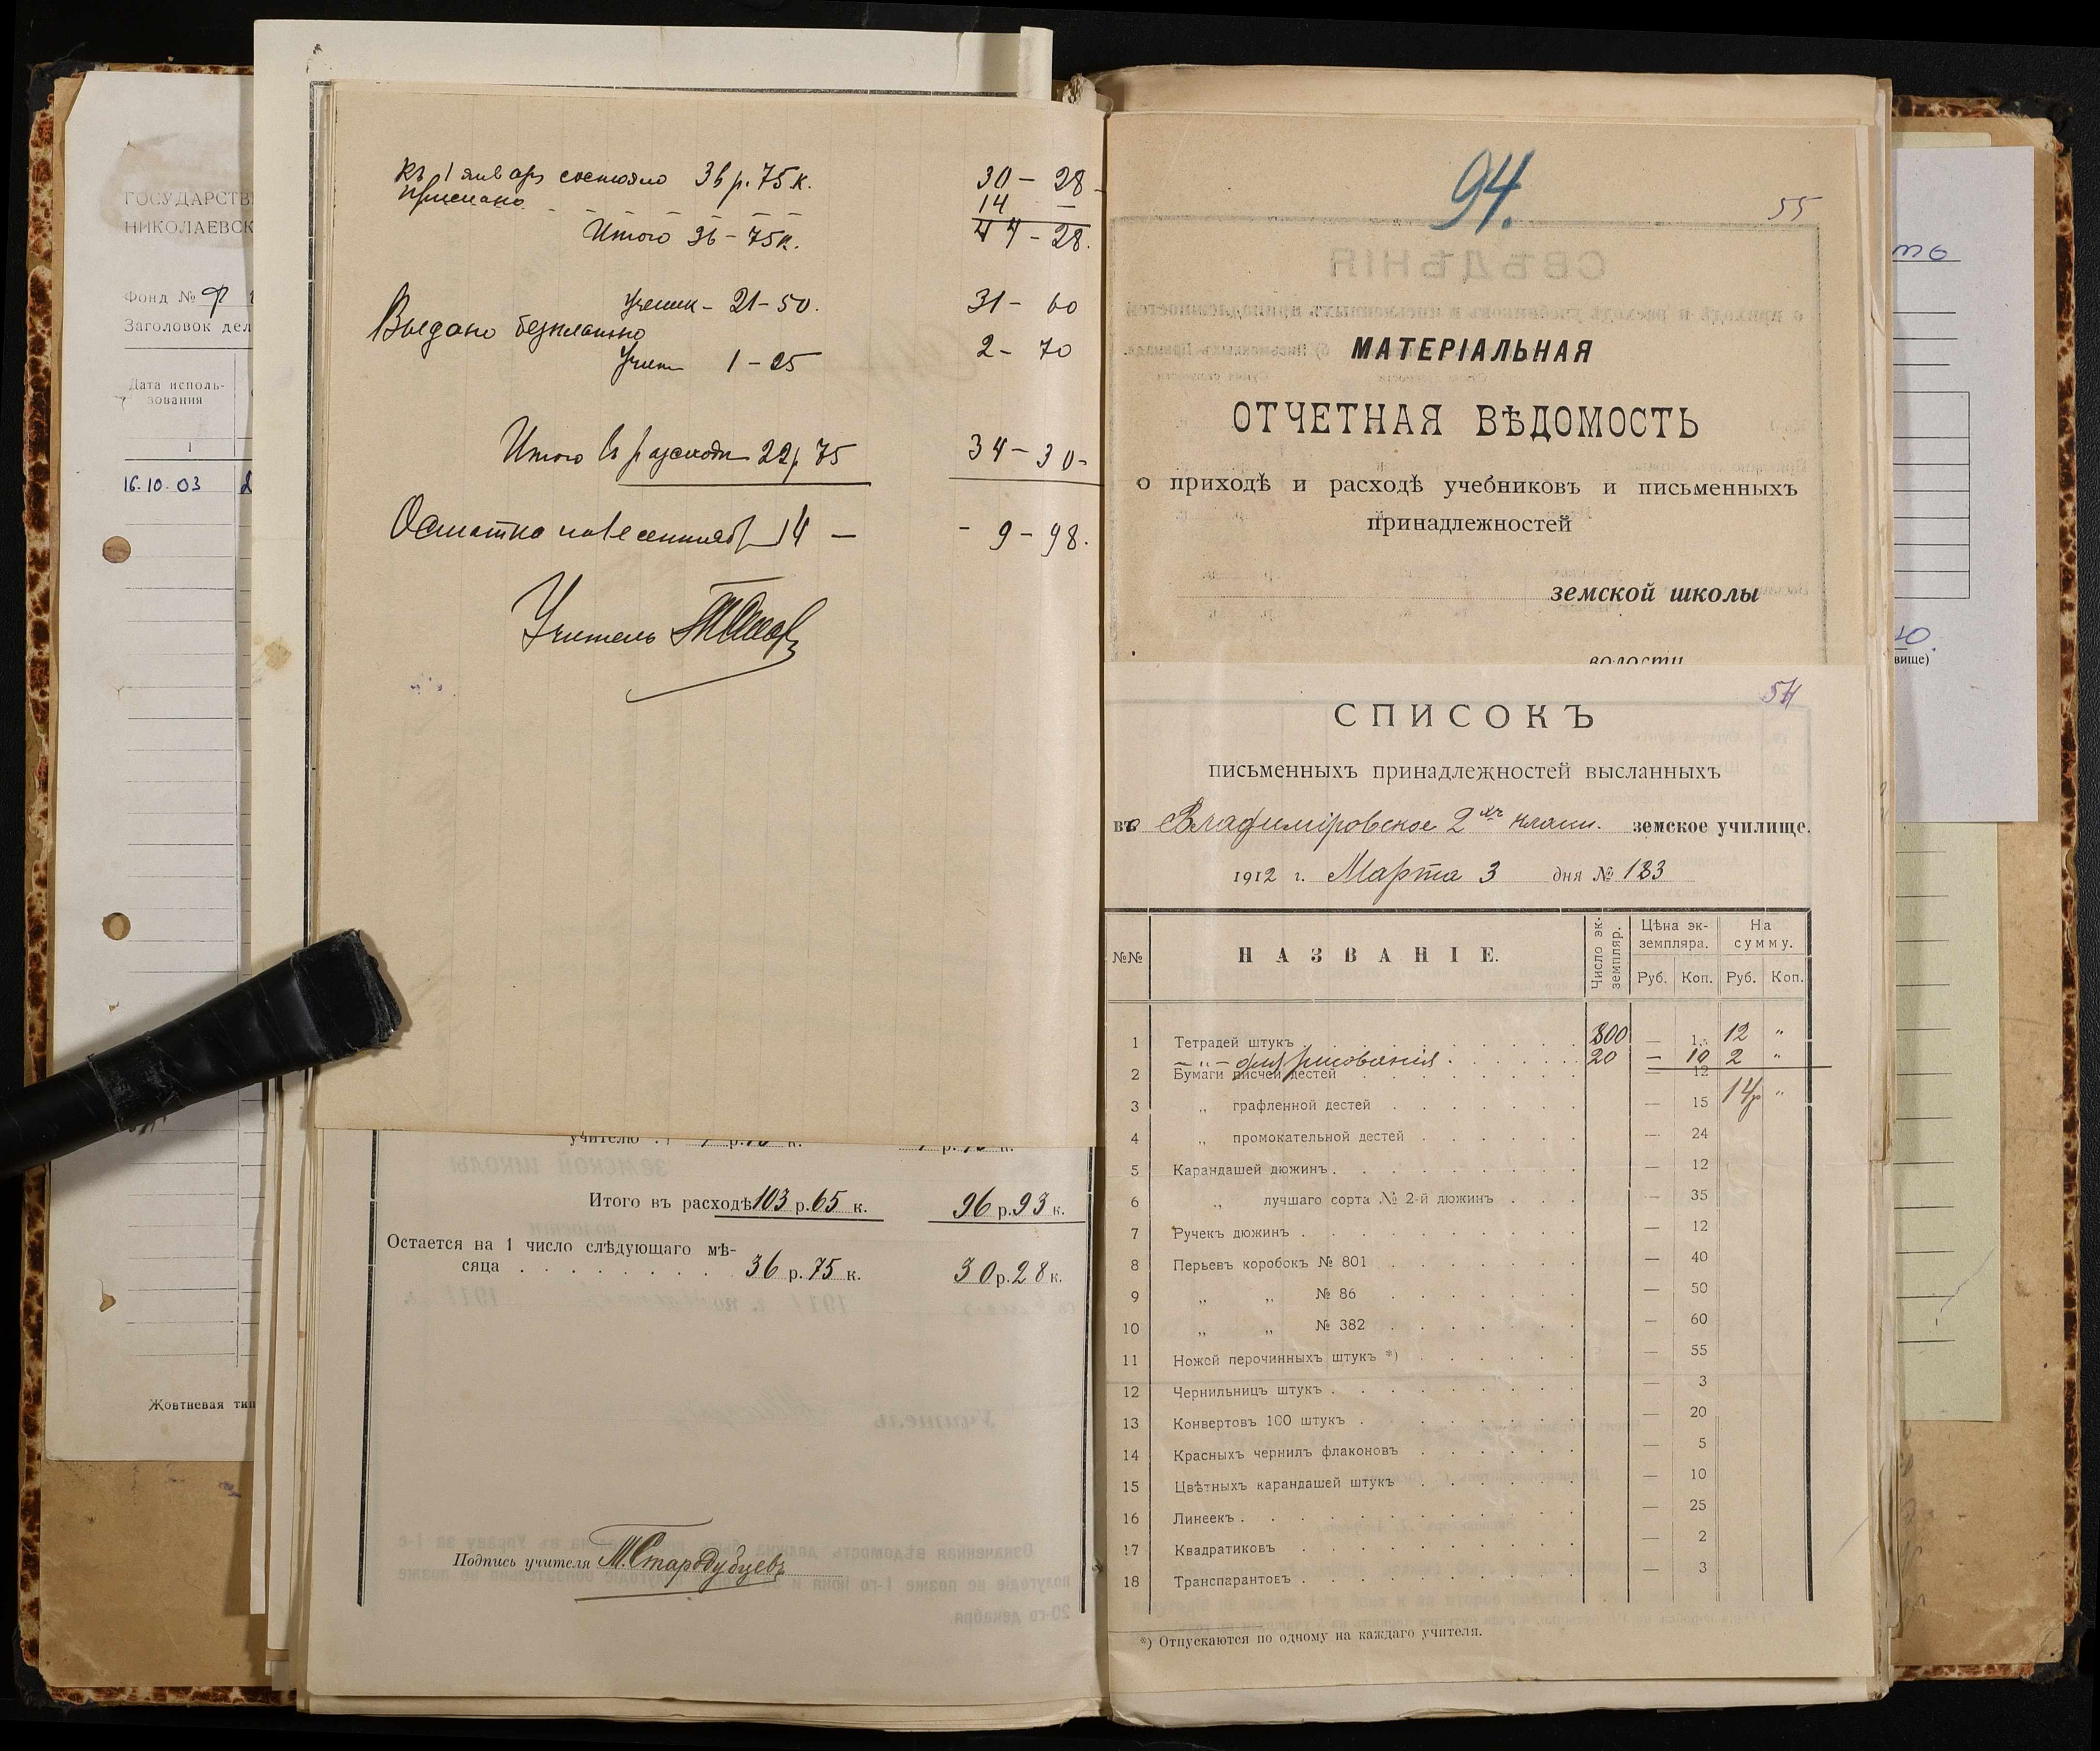 ГОСУДАРСТВ
НИКОЛАЕВСК
Фонд №
Заголовок дел
Дата исполь-
зования
1
16.10.03
Жовтневая тип
Къ 1 январ состояло 36 р. 75 к. 30 - 28 -
Прислано - - - - - - 14 -
Итого 36 - 75 к. 44 - 28.
Учени - 21 - 50. 31 - 60
Выдано безплатно
Учит 1 - 25 2 - 70
Итого въ расходе 22 р 75 34 - 30 -
14 - - 9 - 98.
Учитель
учителю
Итого въ расходѣ 103 р. 65 к. 96 р. 93 к.
Остается на 1 число слѣдующаго мѣ-
сяца . . . . . . . . 36 р. 75 к. 30 р. 28 к.
Подпись учителя М. Стародубцевъ
94.
55
МАТЕРІАЛЬНАЯ
ОТЧЕТНАЯ ВѢДОМОСТЬ
о приходѣ и расходѣ учебниковъ и письменныхъ
принадлежностей
земской школы
волости
54
СПИСОКЪ
письменныхъ принадлежностей высланныхъ
во Владиміровское 2хъ класн. земское училище.
1912 г. Марта 3 дня № 183
№№ НАЗВАНІЕ. Число эк-земпляр. Цѣна эк-земпляра. На сумму.
Руб. Коп. Руб. Коп.
1 Тетрадей штукъ . . . . . . . . . 800 — 1 12 "
— " — для рисованія . . . . . . 20 — 10 2 "
2 Бумаги писчей дестей . . . . . . . . — 12
3 „ графленной дестей . . . . . . . — 15 14р "
4 „ промокательной дестей . . . . . . — 24
5 Карандашей дюжинъ . . . . . . . . . — 12
6 „ лучшаго сорта № 2-й дюжинъ . . . — 35
7 Ручекъ дюжинъ . . . . . . . . . . — 12
8 Перьевъ коробокъ № 801 . . . . . . . — 40
9 „ „ № 86 . . . . . . . — 50
10 „ „ № 382 . . . . . . . — 60
11 Ножей перочинныхъ штукъ *) . . . . . . — 55
12 Чернильницъ штукъ . . . . . . . . . — 3
13 Конвертовъ 100 штукъ . . . . . . . . — 20
14 Красныхъ чернилъ флаконовъ . . . . . . — 5
15 Цвѣтныхъ карандашей штукъ . . . . . . — 10
16 Линеекъ . . . . . . . . . . . . — 25
17 Квадратиковъ . . . . . . . . . . — 2
18 Транспарантовъ . . . . . . . . . . — 3
*) Отпускаются по одному на каждаго учителя.
вище)